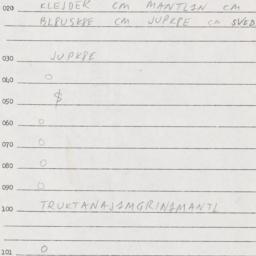 020 KLEJDER CM MANTLIN CM
BLPUSKPE CM JUPKPE CM SVED
030 JUPKPE
040 O
050 $
060 O
070 O
080 O
090 O
100 TRUKTANAJIMGRINIMANTL
101 O